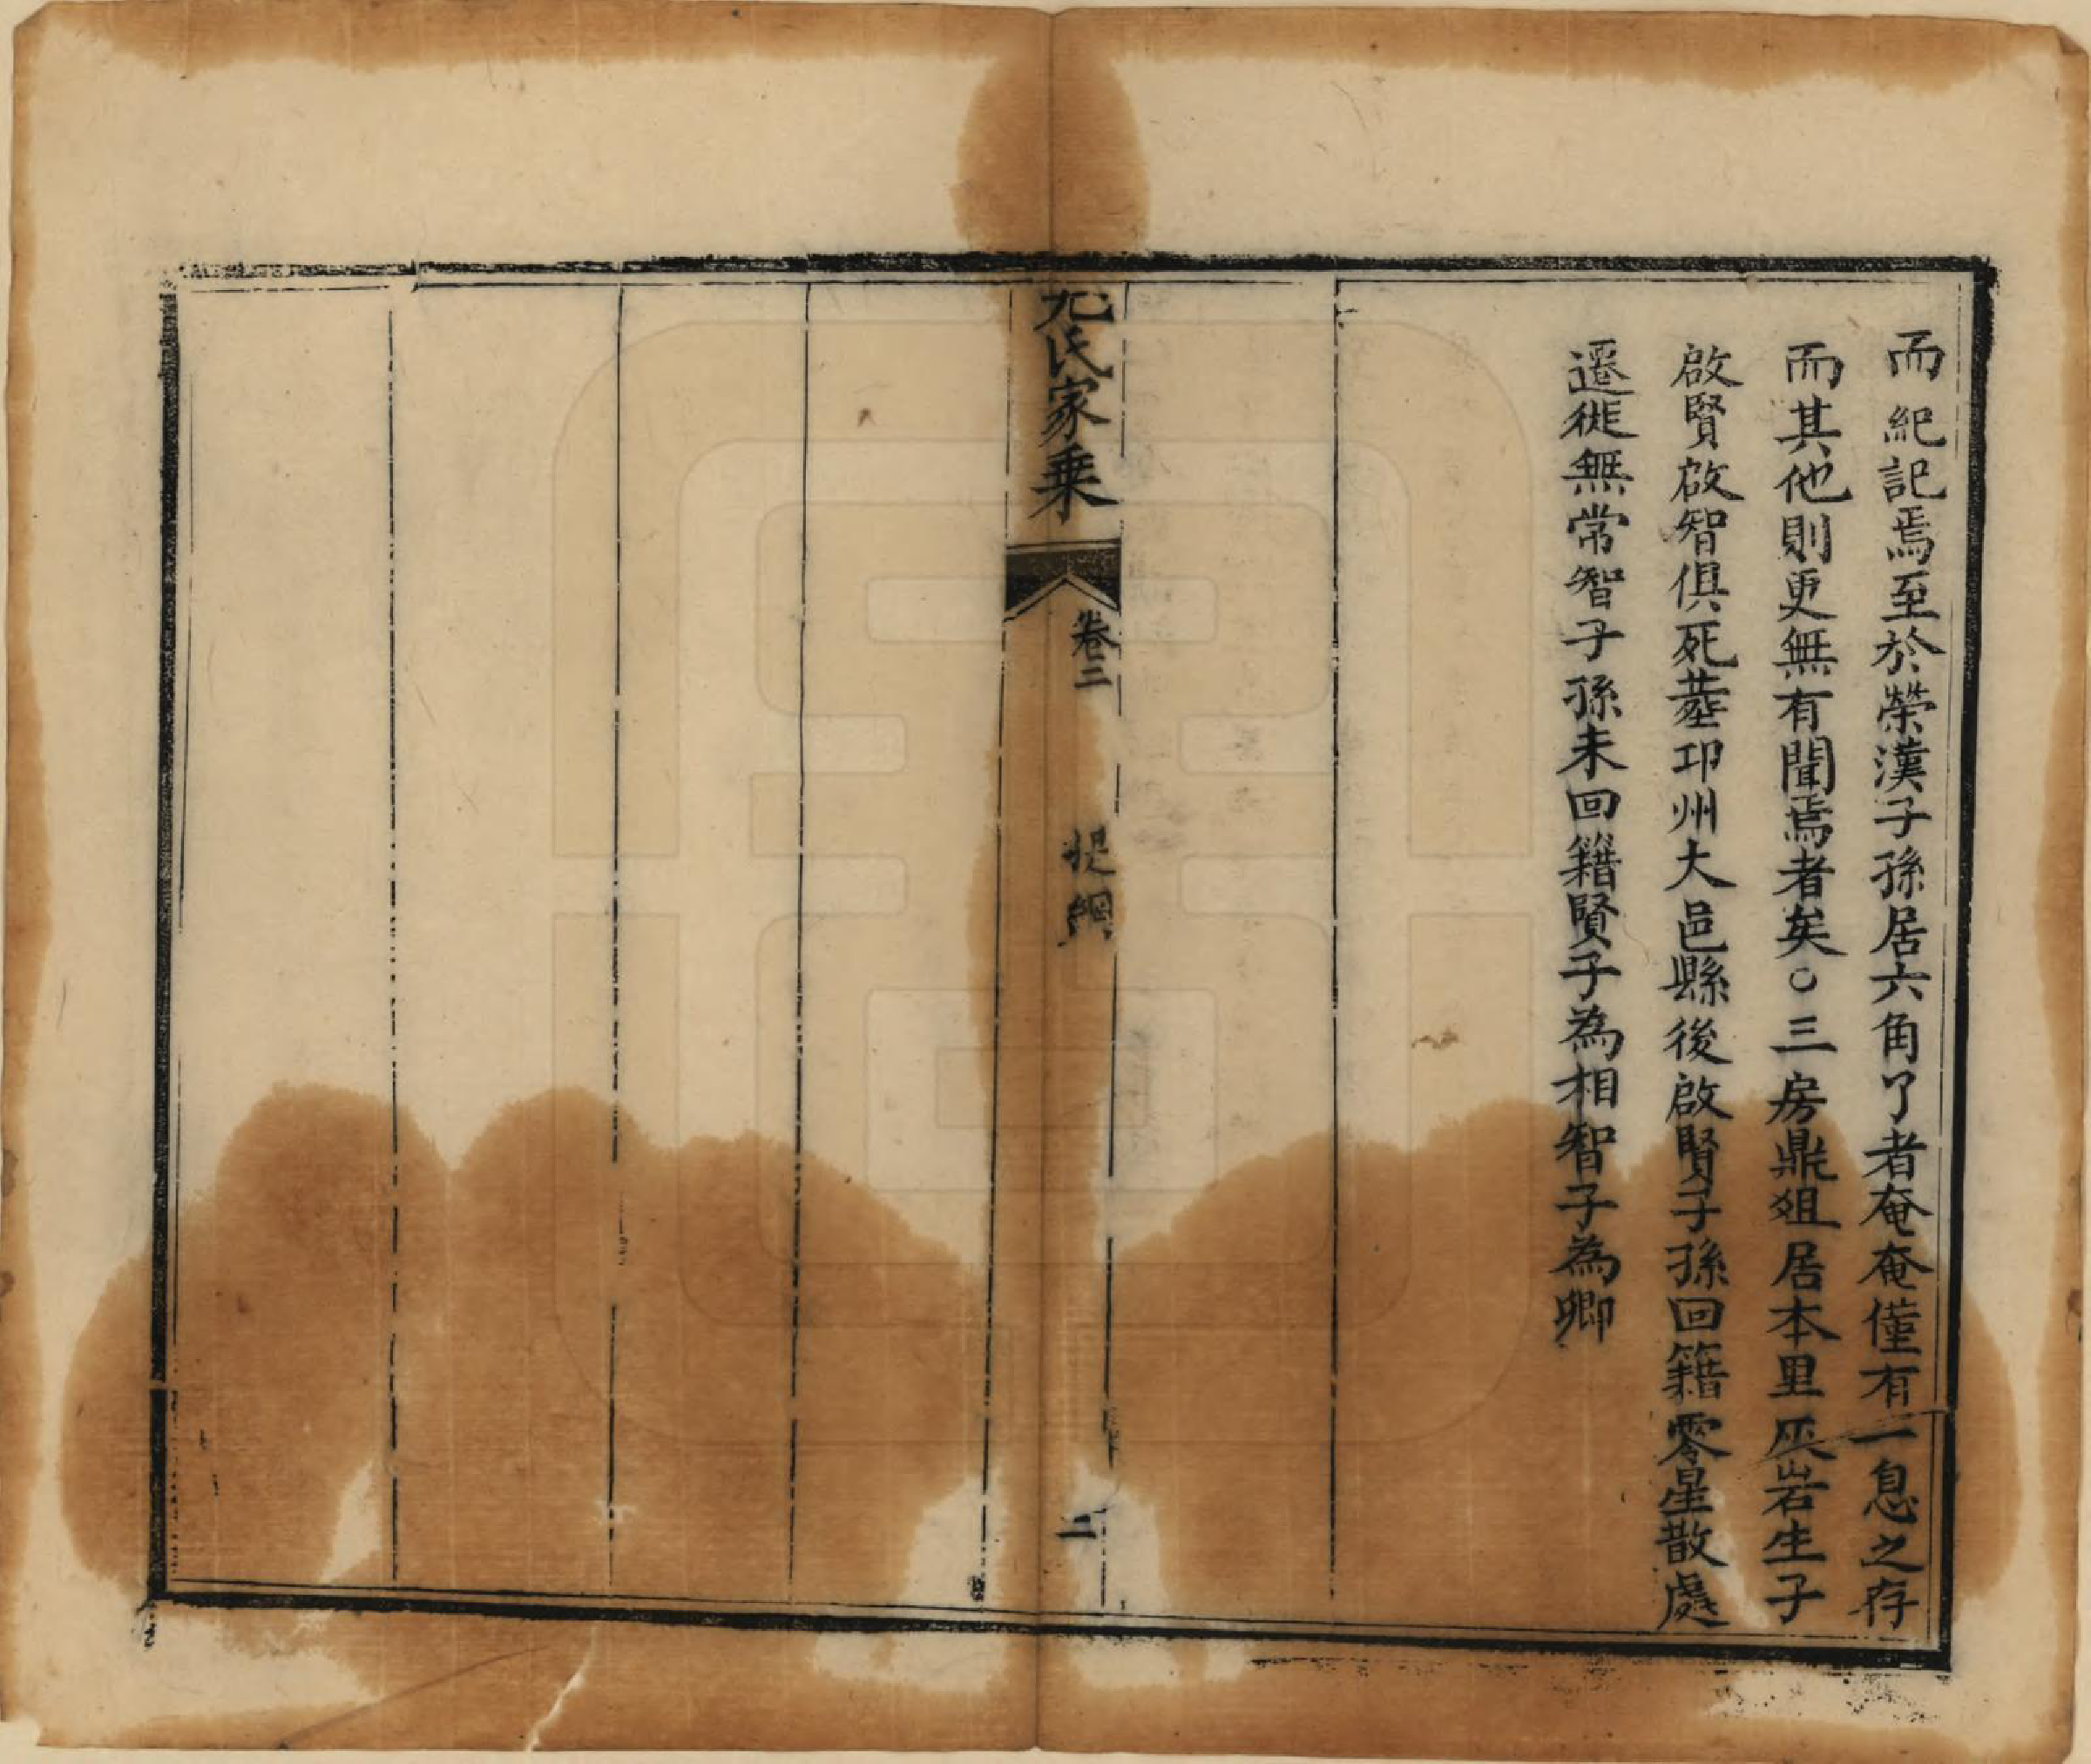 而紀記焉至於榮漢子孫居六角了者奄奄僅有一息之存
而其他則更無有聞焉者矣○三房鼎俎居本里灰岩生子
啟賢啟智俱死塟邛州大邑縣後啟賢子孫回籍零星散處
遷徙無常智子孫未回籍賢子為相智子為卿
尤氏家乗
卷三
提綱
二